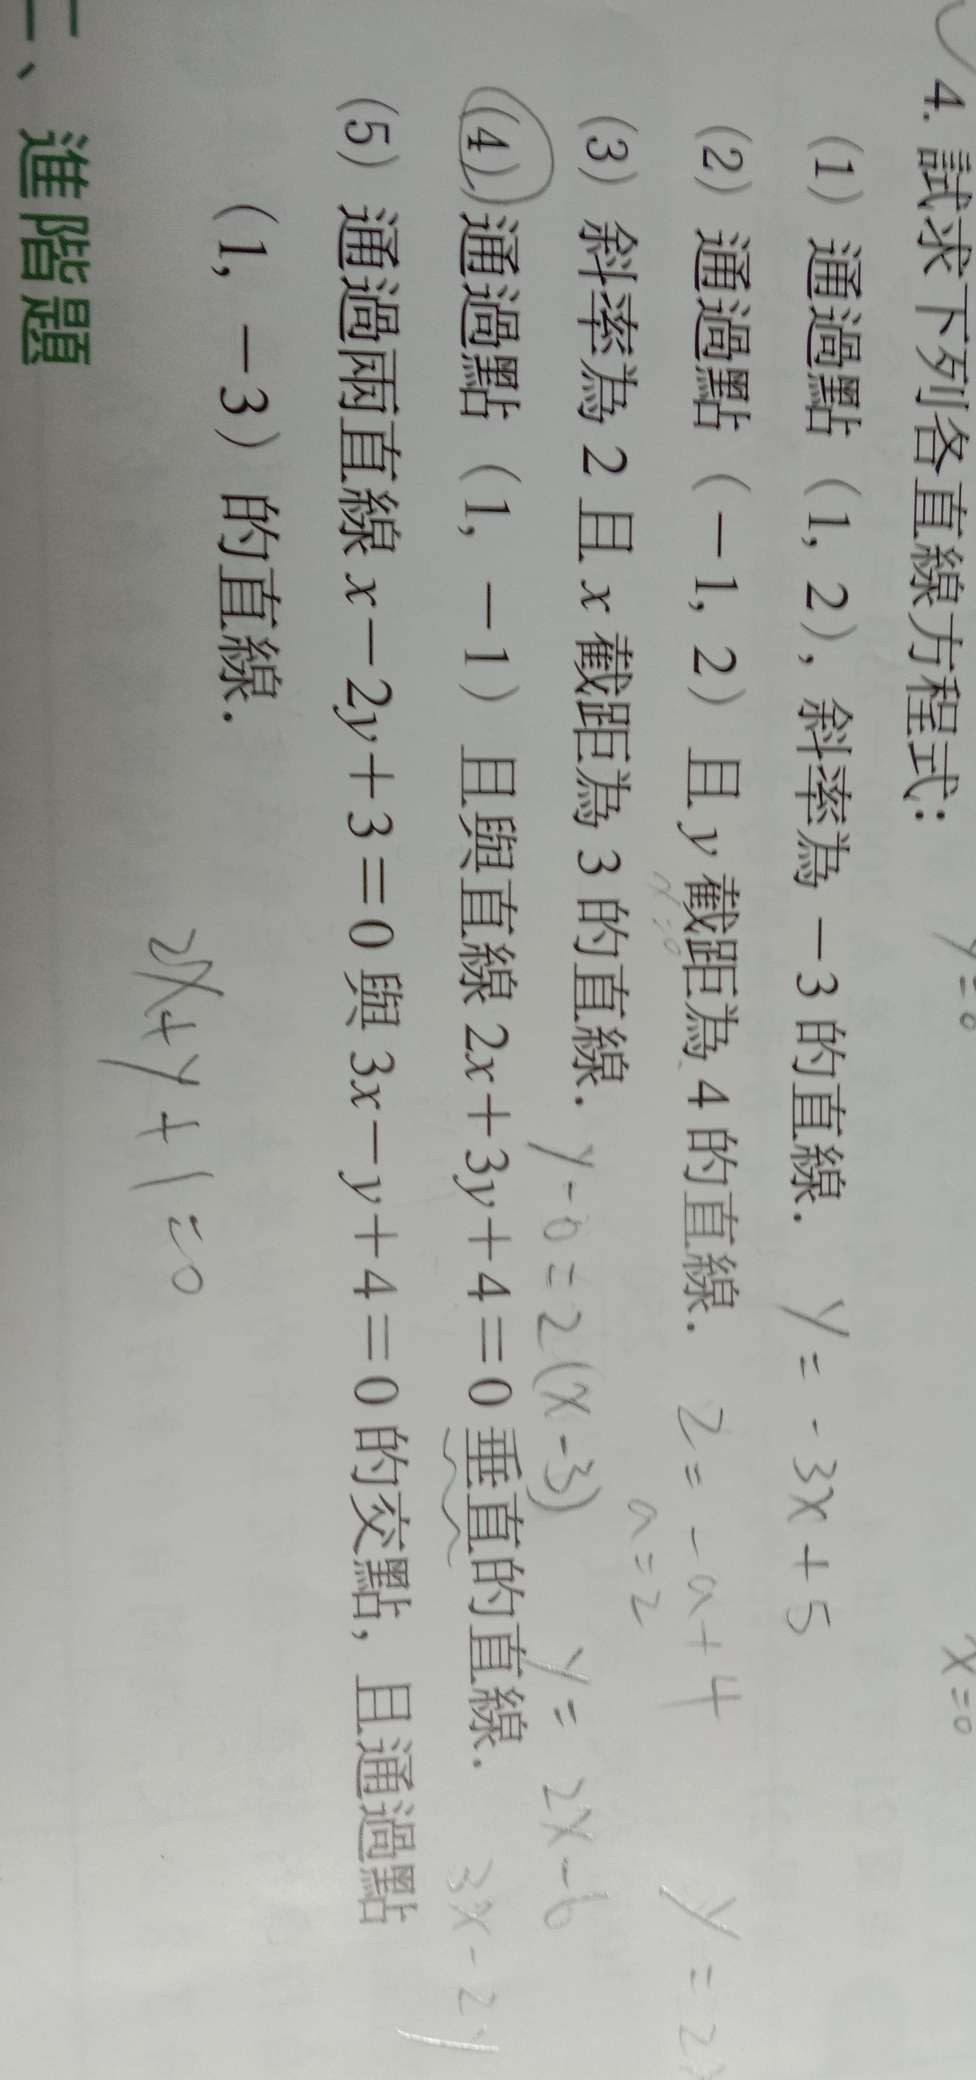 y=0
x=0
4. 試求下列各直線方程式：
(1) 通過點 (1, 2)，斜率為 -3 的直線. y = -3x + 5
(2) 通過點 (-1, 2) 且 y 截距為 4 的直線. 2 = -a + 4 y = 2x
x=0 a = 2
(3) 斜率為 2 且 x 截距為 3 的直線. y-0 = 2(x-3) y = 2x-6
(4) 通過點 (1, -1) 且與直線 2x+3y+4=0 垂直的直線. 3x-2y
(5) 通過兩直線 x-2y+3=0 與 3x-y+4=0 的交點，且通過點
(1, -3) 的直線.
2x+y+1=0
二、進階題